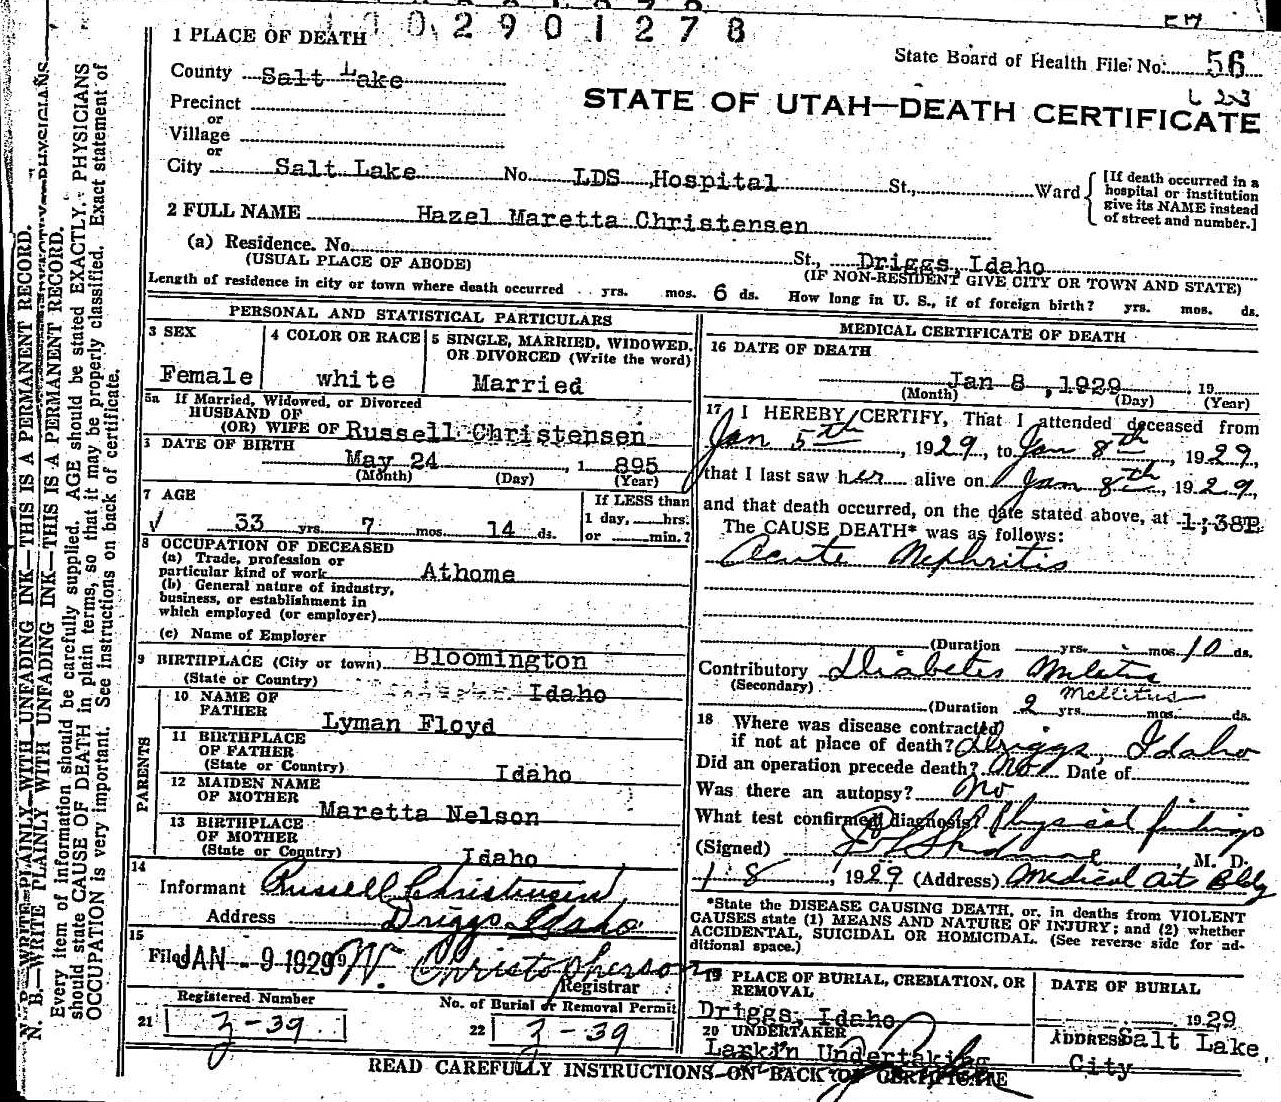 0 2 9 0 1 2 7 8
1 PLACE OF DEATH
State Board of Health File No. 56
County Salt Lake
L 223
STATE OF UTAH—DEATH CERTIFICATE
Precinct
or
Village
or
City Salt Lake No. LDS Hospital St., Ward
[If death occurred in a
hospital or institution
give its NAME instead
of street and number.]
2 FULL NAME Hazel Maretta Christensen
(a) Residence. No. St., Driggs, Idaho
(USUAL PLACE OF ABODE) (IF NON-RESIDENT GIVE CITY OR TOWN AND STATE)
Length of residence in city or town where death occurred yrs. mos. 6 ds. How long in U. S., if of foreign birth? yrs. mos. ds.
PERSONAL AND STATISTICAL PARTICULARS
3 SEX
Female
4 COLOR OR RACE
white
5 SINGLE, MARRIED, WIDOWED,
OR DIVORCED (Write the word)
Married
5a If Married, Widowed, or Divorced
HUSBAND OF
(OR) WIFE OF Russell Christensen
DATE OF BIRTH
May 24, 1 895
(Month) (Day) (Year)
7 AGE
33 yrs. 7 mos. 14 ds.
If LESS than
1 day, hrs.
or min.?
8 OCCUPATION OF DECEASED
(a) Trade, profession or
particular kind of work Athome
(b) General nature of industry,
business, or establishment in
which employed (or employer)
(c) Name of Employer
9 BIRTHPLACE (City or town) Bloomington
(State or Country) Idaho
PARENTS
10 NAME OF
FATHER Lyman Floyd
11 BIRTHPLACE
OF FATHER
(State or Country) Idaho
12 MAIDEN NAME
OF MOTHER Maretta Nelson
13 BIRTHPLACE
OF MOTHER
(State or Country) Idaho
14
Informant Russell Christensen
Address Driggs Idaho
15
Filed JAN - 9 1929 W. Christopherson
Registrar
Registered Number
21 3-39
No. of Burial or Removal Permit
22 3-39
MEDICAL CERTIFICATE OF DEATH
16 DATE OF DEATH
Jan 8, 1929, 19
(Month) (Day) (Year)
17 I HEREBY CERTIFY, That I attended deceased from
Jan 5th, 1929, to Jan 8th, 1929,
that I last saw her alive on Jan 8th, 1929,
and that death occurred, on the date stated above, at 1;38P
The CAUSE DEATH* was as follows:
Acute Nephritis
(Duration yrs. mos. 10 ds.
Contributory Diabetes Miletus
(Secondary) Mellitus
(Duration 2 yrs. mos. ds.
18 Where was disease contracted
if not at place of death? Driggs, Idaho
Did an operation precede death? No Date of
Was there an autopsy? No
What test confirmed diagnosis? Physical findings
(Signed) Skidmore, M. D.
1-8, 1929 (Address) Medical Art Bldg
*State the DISEASE CAUSING DEATH, or, in deaths from VIOLENT
CAUSES state (1) MEANS AND NATURE OF INJURY; and (2) whether
ACCIDENTAL, SUICIDAL OR HOMICIDAL. (See reverse side for ad-
ditional space.)
19 PLACE OF BURIAL, CREMATION, OR
REMOVAL
Driggs, Idaho
DATE OF BURIAL
1929
20 UNDERTAKER
Larkin Undertaking
ADDRESS Salt Lake
City
READ CAREFULLY INSTRUCTIONS ON BACK OF CERTIFICATE
N. B.—WRITE PLAINLY WITH UNFADING INK—THIS IS A PERMANENT RECORD.
Every item of information should be carefully supplied. AGE should be stated EXACTLY. PHYSICIANS
should state CAUSE OF DEATH in plain terms, so that it may be properly classified. Exact statement of
OCCUPATION is very important. See instructions on back of certificate.